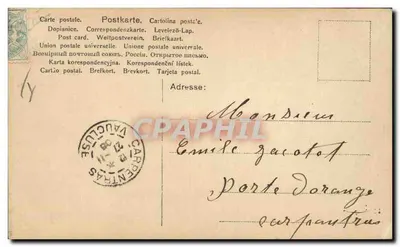 Carte postale. Postkarte. Cartolina postale.
Dopisnice. Correspondenzkarte. Levelező-Lap.
Post card. Weltpostverein. Briefkaart.
Union postale universelle. Unione postale universale.
Всемірный почтовый союзъ. Россія. Открытое письмо.
Karta korespondencyjna. Korespondenční lístek.
Cartão postal. Brefkort. Brevkort. Tarjeta postal.
Adresse:
Monsieur
Emile Jacotot
Porte Dorange
Carpentras
CARPENTRAS
VAUCLUSE
CPAPHIL.com